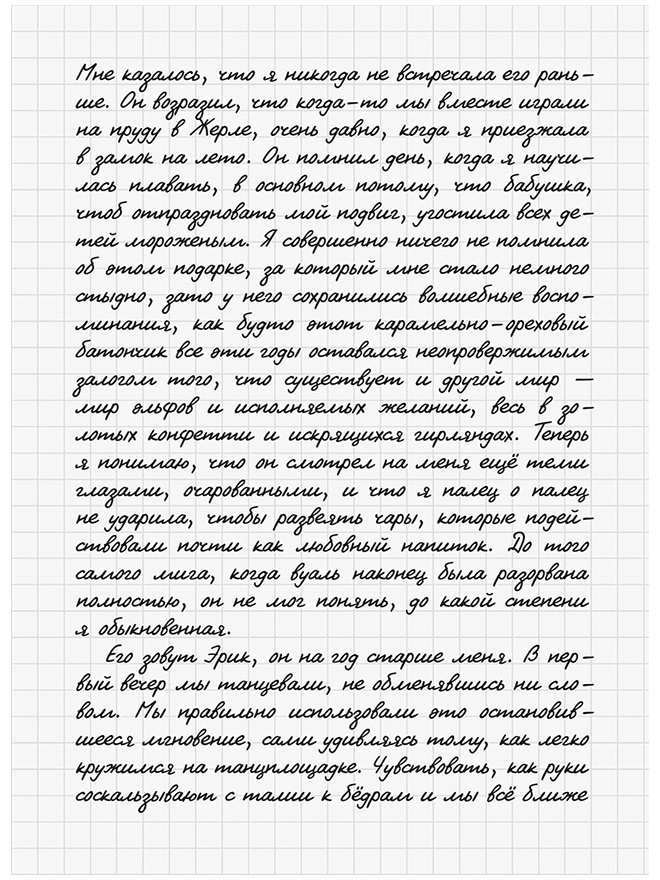 Мне казалось, что я никогда не встречала его рань-
ше. Он возразил, что когда-то мы вместе играли
на пруду в Жерле, очень давно, когда я приезжала
в замок на лето. Он помнил день, когда я научи-
лась плавать, в основном потому, что бабушка,
чтоб отпраздновать мой подвиг, угостила всех де-
тей мороженым. Я совершенно ничего не помнила
об этом подарке, за который мне стало немного
стыдно, зато у него сохранились волшебные воспо-
минания, как будто этот карамельно-ореховый
батончик все эти годы оставался неопровержимым
залогом того, что существует и другой мир —
мир эльфов и исполняемых желаний, весь в зо-
лотых конфетти и искрящихся гирляндах. Теперь
я понимаю, что он смотрел на меня ещё теми
глазами, очарованными, и что я палец о палец
не ударила, чтобы развеять чары, которые подей-
ствовали почти как любовный напиток. До того
самого мига, когда вуаль наконец была разорвана
полностью, он не мог понять, до какой степени
я обыкновенная.
Его зовут Эрик, он на год старше меня. В пер-
вый вечер мы танцевали, не обменявшись ни сло-
вом. Мы правильно использовали это остановив-
шееся мгновение, сами удивляясь тому, как легко
кружимся на танцплощадке. Чувствовать, как руки
соскальзывают с талии к бёдрам и мы всё ближе